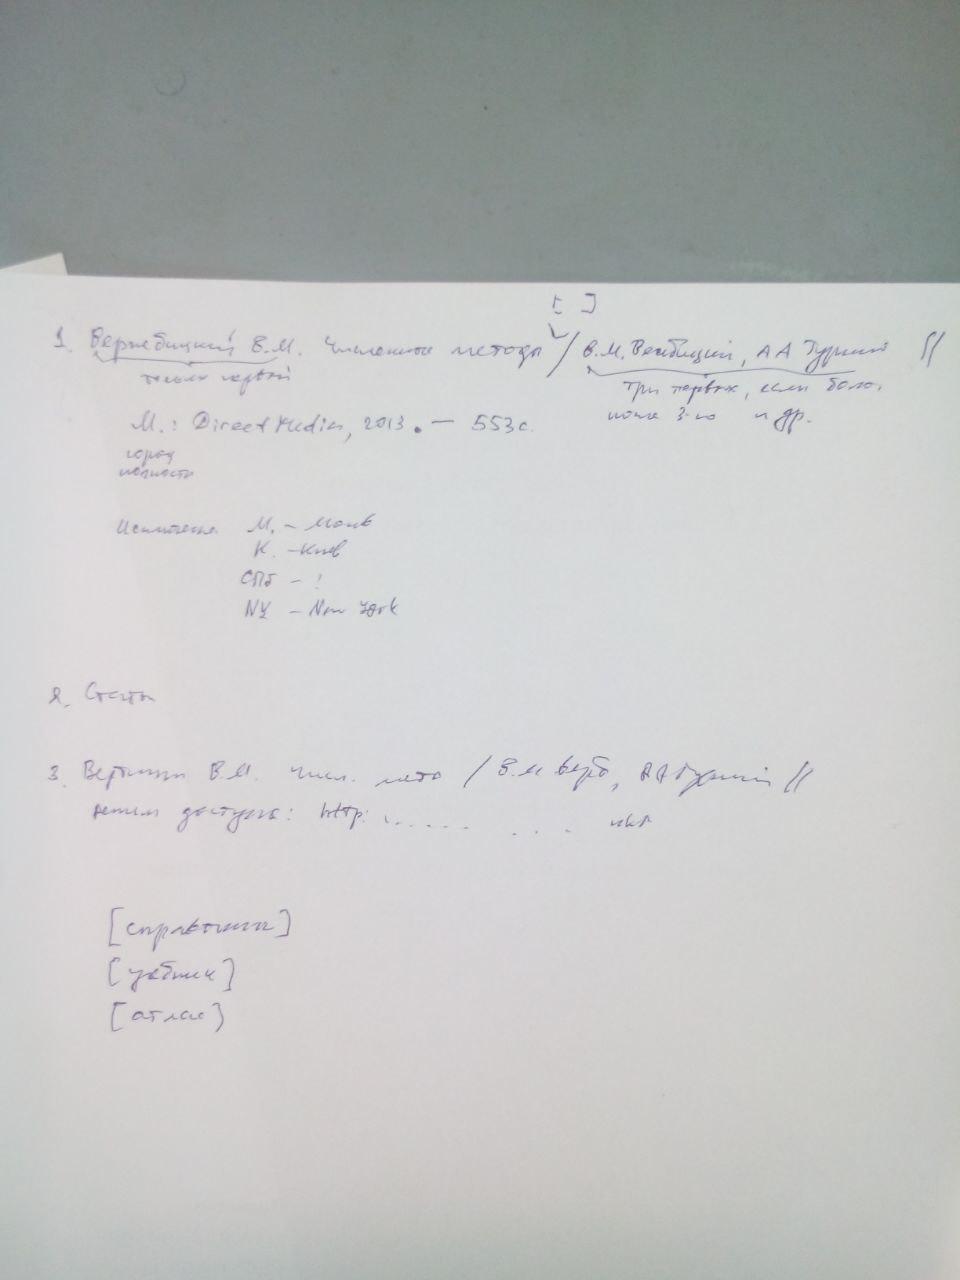 [ ]
1. Вержбицкий В.М. Численные методы / В.М. Вежбицкий, А А //
только первый
три первых, если боль.
3-го и др.
М.: DirectMedia, 2013. — 553 с.
город
полностью
М. –
К. – Киев
СПб – !
NY – New York
2. Статьи
3. В.М. числ. мето / В.М Верб, АА //
режим доступа: http: . . . . . . . . .
[справочник]
[учебник]
[атлас]